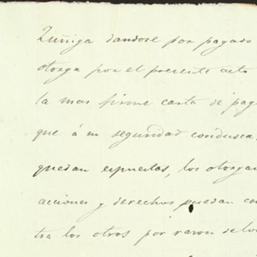 Zuñiga dandose por pagado
otorga por el presente acto
la mas firme carta de pag
que á su seguridad condusca,
quedan espuestas, los otorgan
acciones y derechos puedan con
tra los otros por razon de los